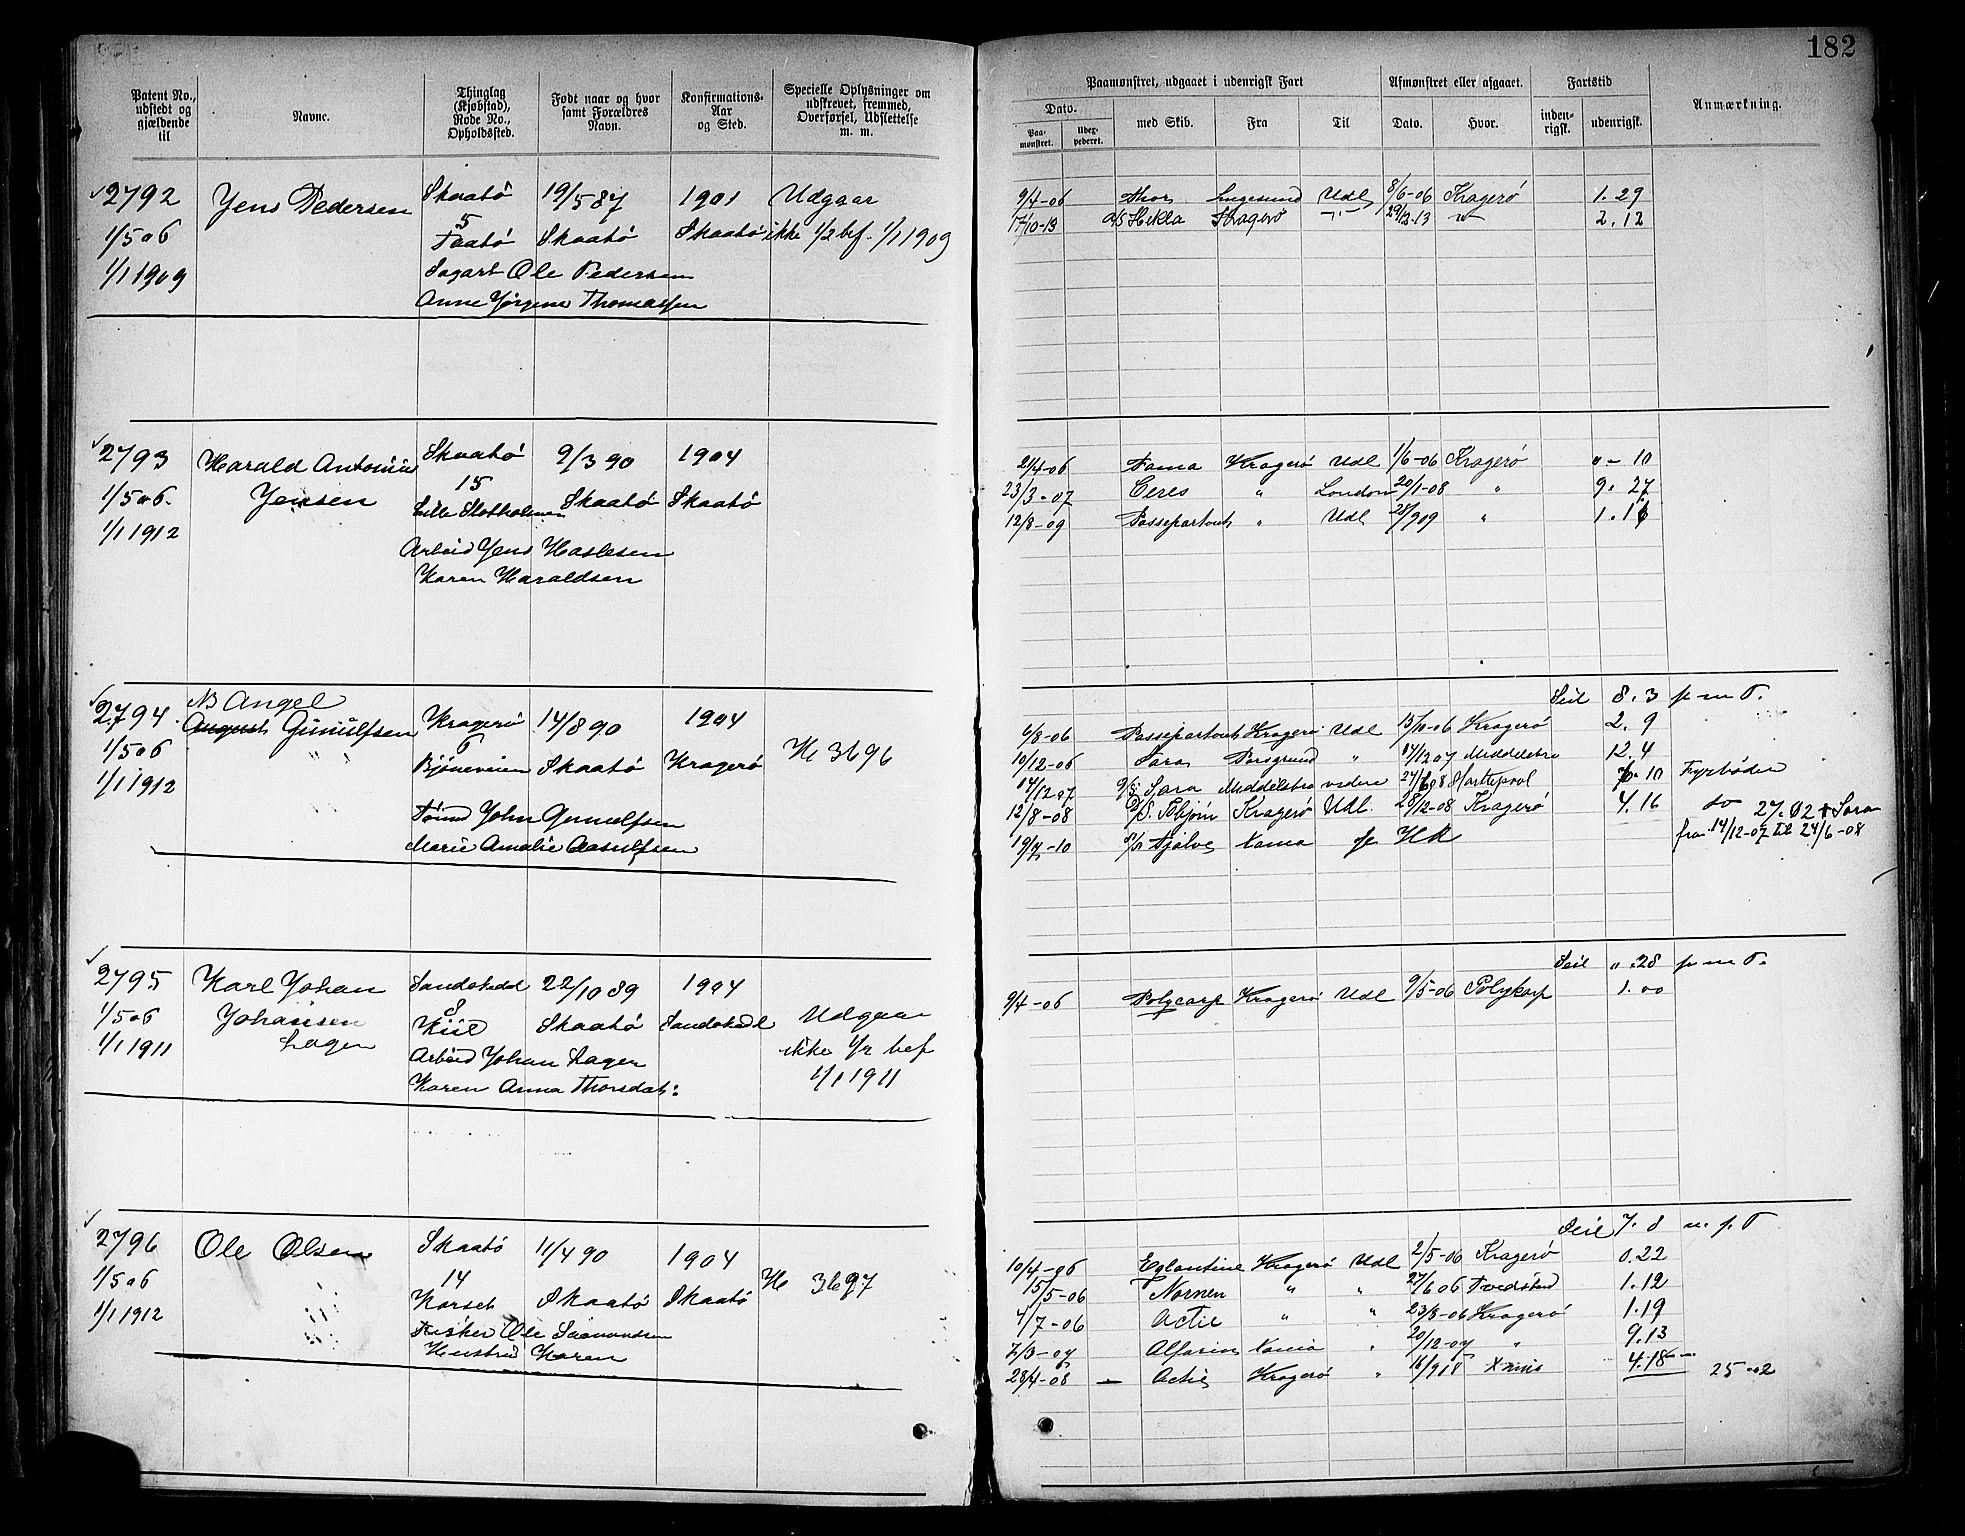 182
Patent No., udstedt og gjældende til
Navne.
Thinglag (Kjøbstad), Rode No., Opholdssted.
Født naar og hvor samt Forældres Navn.
Konfirmations-Aar og Sted.
Specielle Oplysninger om udskrevet, fremmed, Overførsel, Udslettelse m. m.
Paamønstret, udgaaet i udenrigsk Fart
Afmønstret eller afgaaet.
Fartstid
Anmærkning.
Dato.
med Skib.
Fra
Til
Dato.
Hvor.
inden-rigsk.
udenrigsk.
Paa-mønstret.
2792 Jens Pedersen Skaatö 19/5 87 1901 Udgaar
1/5 06 5 Faatö Skaatö Skaatö ikke 1/2 bef. 1/1 1909
1/1 1909 Ole Pedersen
Anne Jörgine Thomassen
9/4-06 Thor Langesund Udl 8/6-06 Kragerö 1. 29
17/10-13 Hekla Kragerö 29/12-13 2. 12
2793 Harald Antonius Skaatö 9/3 90 1904
1/5 06. Jensen 15 Skaatö Skaatö
1/1 1912 Arbeid Jens Haslesen
Karen Haraldsen
2/4-06 Fama Kragerö Udl 1/6-06 Kragerö " - 10
23/3-07 Ceres " London 20/1-08 " 9. 27
12/8-09 Passepartout " Udl 28/9 09 "
NB Angel
2794 August Gunulfsen Kragerö 14/8 90 1904
1/5 06 6 Bjöneveien Skaatö Kragerö H 3696
1/1 1912
John Gunulfsen
Marie Amalie Aasulfsen
Seil 8. 3 p m T.
6/8-06 Passepartout Kragerö Udl 15/10-06 Kragerö 2. 9
10/12-06 Sara Porsgrund " 14/12 07 Middelsbro 12. 4
14/12-07 Sara Middelsbro videre 24/6 08 Hartlepool Fyrböder
12/8-08 Kragerö Udl. 28/12-08 Kragerö 4. 16 do 27. 02 + Sara
fra 14/12-07 til 24/6-08
19/7-10 Tjalve
2795 Karl Johan Sandökedal 22/10 89 1904
1/5 06 Johansen 8 Kiil Skaatö Sandökedl Udgaar
1/1 1911 Lagen Arbeid Johan Lagen ikke 1/2 bef
Karen Anna Thorsdat: 1/1 1911
Seil ". 28 p m T.
9/4-06 Polycarp Kragerö Udl 9/5-06 Polykarp 1. 00
2796 Ole Olsen Skaatö 11/4 90 1904
1/5 06 14 H 3697
1/1 1912 Korset Skaatö Skaatö
Fisker Ole Saamundsen
Hustru Karen
Seil 7. 8 m. p. T
10/4-06 Eglantine Kragerö Udl 2/5-06 Kragerö 0. 22
15/5-06 Nornen " " 27/6 06 Tvedstrd 1. 12
4/7-06 Actie " " 23/8-06 Kragerö 1. 19
7/3-07 Alfarin " 20/12-07 " 9. 13
28/4-08 — Actie Kragerö " 4. 18 25 - 2